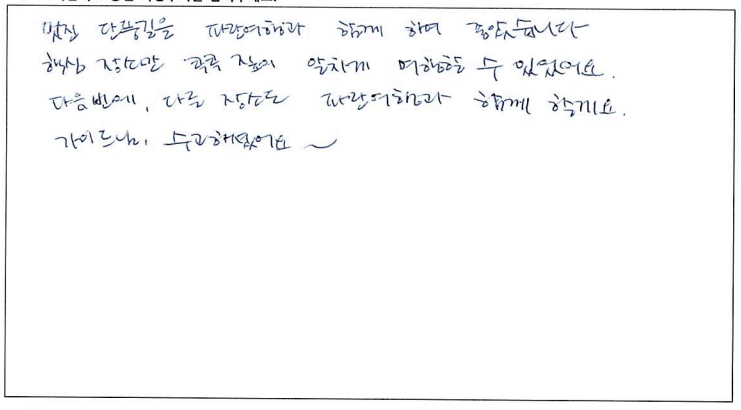 멋진 단풍길을 파란여행과 함께 하여 좋았습니다
핵심 장소만 콕콕 집어 알차게 여행할 수 있었어요.
다음번에, 다른 장소도 파란여행과 함께 할게요.
가이드님, 수고하셨어요 ~